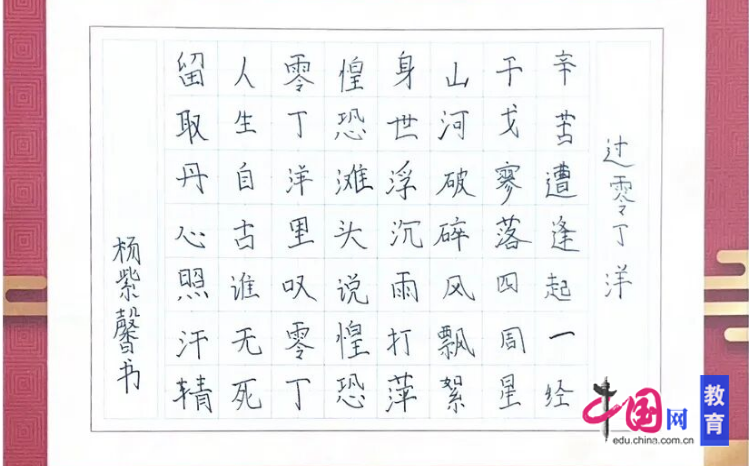 过零丁洋
辛苦遭逢起一经
干戈寥落四周星
山河破碎风飘絮
身世浮沉雨打萍
惶恐滩头说惶恐
零丁洋里叹零丁
人生自古谁无死
留取丹心照汗
杨紫馨书
中国网
edu.china.com.cn
教育